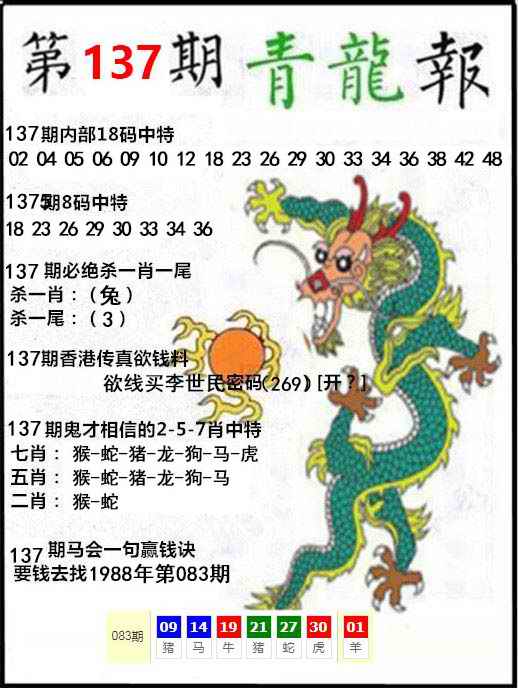 第137期青龍報
137期内部18码中特
02 04 05 06 09 10 12 18 23 26 29 30 33 34 36 38 42 48
137期8码中特
18 23 26 29 30 33 34 36
137 期必绝杀一肖一尾
杀一肖：(兔)
杀一尾：(3)
137期香港传真欲钱料
欲线买李世民密码(269) [开?]
137 期鬼才相信的2-5-7肖中特
七肖： 猴-蛇-猪-龙-狗-马-虎
五肖： 猴-蛇-猪-龙-狗-马
二肖： 猴-蛇
137 期马会一句赢钱诀
要钱去找1988年第083期
083期 09 14 19 21 27 30 01
猪 马 牛 猪 蛇 虎 羊